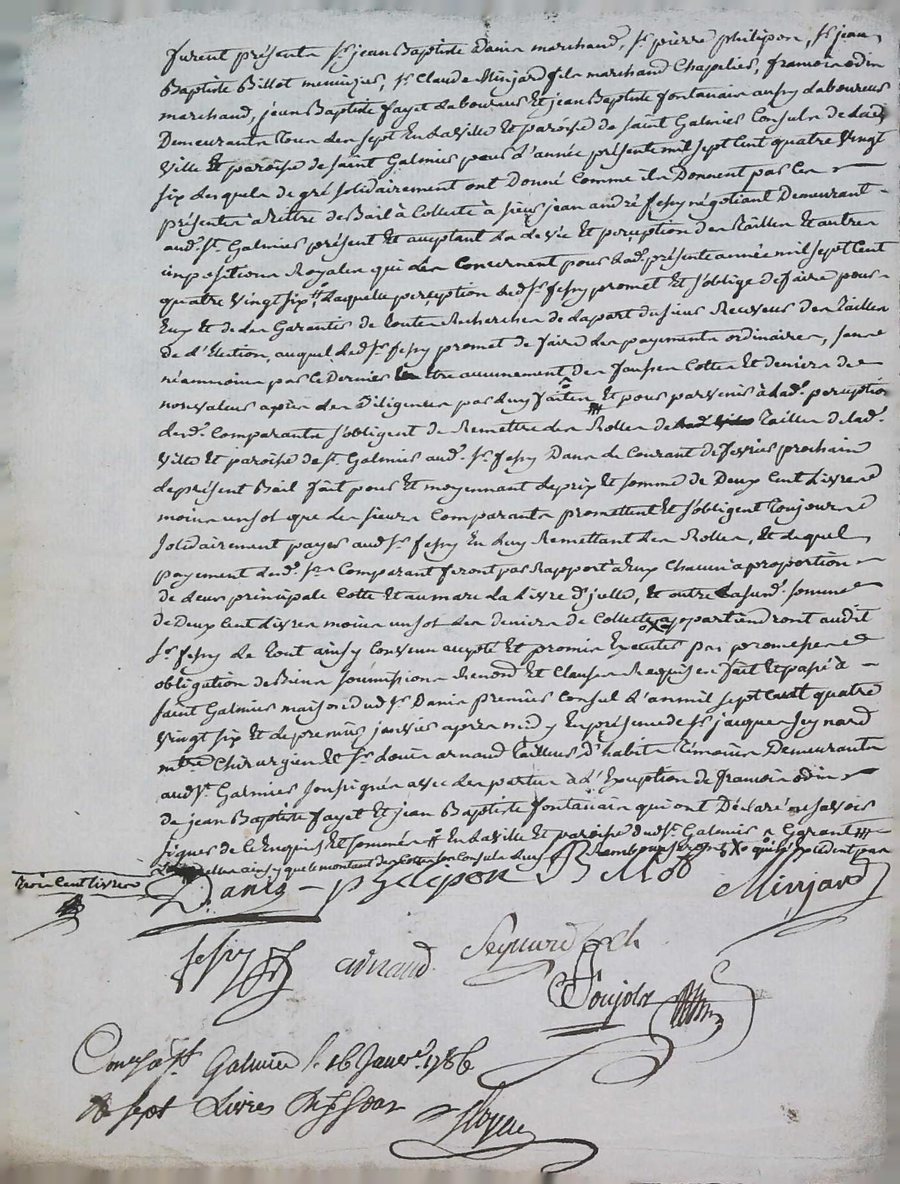 furent présents Sr jean Baptiste Danis marchand, Sr pierre philipon, Sr jean
Baptiste Billot menuizier, Sr Claude Minjard fils marchand Chapelier, francois odin
marchand, jean Baptiste fayet Laboureur Et jean Baptiste fontanain aussy Laboureur
Demeurants tous Les sept En La ville Et paroisse de saint Galmier Consuls de Lad.
ville Et paroisse de saint Galmier pour L'année présente mil sept Cent quatre vingt
six Lesquels de gré solidairement ont Donné Comme ils Donnent par Ces
présentes a titre de Bail à Collecte à sieur jean andré fessy négotiant Demeurant
aud. St. Galmier présent Et acceptant La Levée Et perception des tailles Et autres
impositions Royales qui Les Concernent pour Lad. présente année mil sept Cent
quatre vingt six, Laquelle perception Led. Sr fessy promet Et s'oblige de faire pour
Eux Et de Les Garantir de toutes Recherches de La part du sieur Receveur des tailles
de L'Election, auquel Led. Sr fessy promet de faire Les payements ordinaires, sans
néanmoins par Ce Dernier Etre aucunement des fausses Cottes Et deniers de
non valeur après Les Diligences par Luy faites Et pour parvenir à Lad. perception
Lesd. Comparants s'obligent de Remettre Les Rolles de tailles de Lad.
ville Et paroisse de St. Galmier aud. Sr. fessy Dans Le Courant de fevrier prochain
Le présent Bail fait pour Et moyennant Le prix Et somme de Deux Cent Livres
moins un sol que Les sieurs Comparants promettent Et s'obligent toujours
solidairement payer aud. Sr. fessy En Luy Remettant Les Rolles, Et Lequel
payement Lesd. Srs Comparant feront par Rapport à Eux Chacun a proportion
de Leur principale Cotte Et au marc La Livre d'jcelle, Et outre La susd. somme
de Deux Cent Livres moins un sol Les deniers de Collecte apartiendront audit
Sr. fessy Le tout ainsy Convenu accepté Et promis Executer par promesse
obligation de Biens soumissions Renond. Et Clauses Requises fait Et passé à
saint Galmier maison dud. Sr Danis premier Consul L'an mil sept Cent quatre
vingt six Et Le premier janvier après midy En présence de Sr. jacques seynard
mtre. Chirurgien Et Sr. Louis arnaud tailleur d'habits témoins Demeurants
aud. St. Galmier soussignés avec Les parties à L'Exception de francois odin
de jean Baptiste fayet Et jean Baptiste fontanain qui ont Déclaré ne savoir
signer de ce Enquis Et sommés En La ville Et paroisse dud. St. Galmier Garant
ainsy que Le montant des Cottes des Consuls qui Excedent pas
trois Cent Livres
Danis phelepon Billot Minjard
fessy arnaud Seynard
Poujols
Con. a St. Galmier le 16 Janvr. 1786
sept Livres